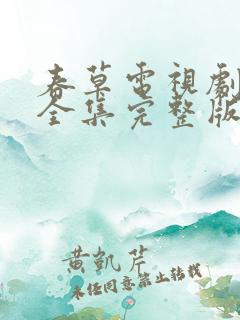 春草電視劇
全集完整版
黄凱芹
未经同意禁止转载